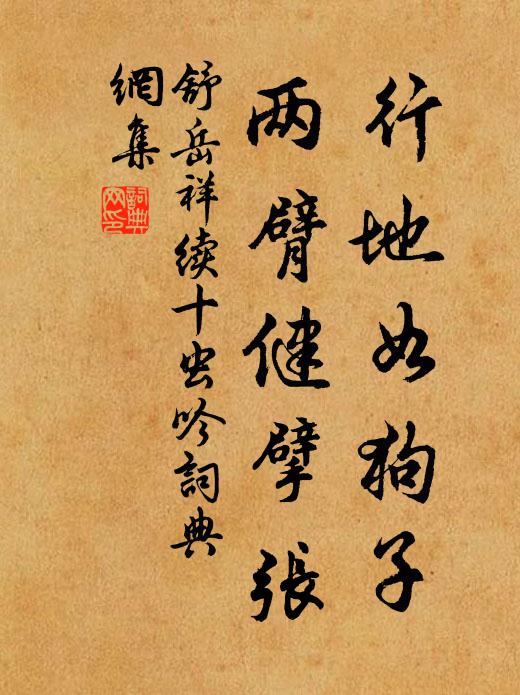 行地如狗子
两臂健擘張
舒岳祥续十虫吟詞典
網集
詞典
网印